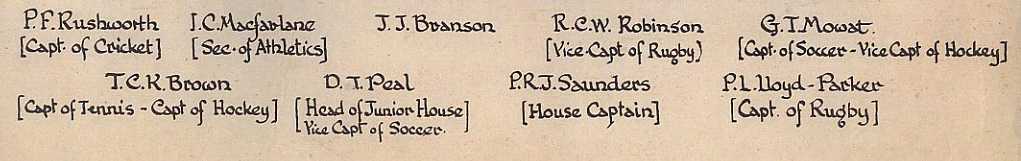 P.F. Rushworth I.C. Macfarlane J.J. Branson R.C.W. Robinson G.T. Mowat.
[Capt. of Cricket] [Sec. of Athletics] [Vice Capt of Rugby] [Capt. of Soccer - Vice Capt of Hockey]
T.C.K. Brown D.I. Peal P.R.J. Saunders P.L. Lloyd-Parker
[Capt of Tennis - Capt of Hockey] [Head of Junior House] [House Captain] [Capt. of Rugby]
Vice Capt of Soccer.